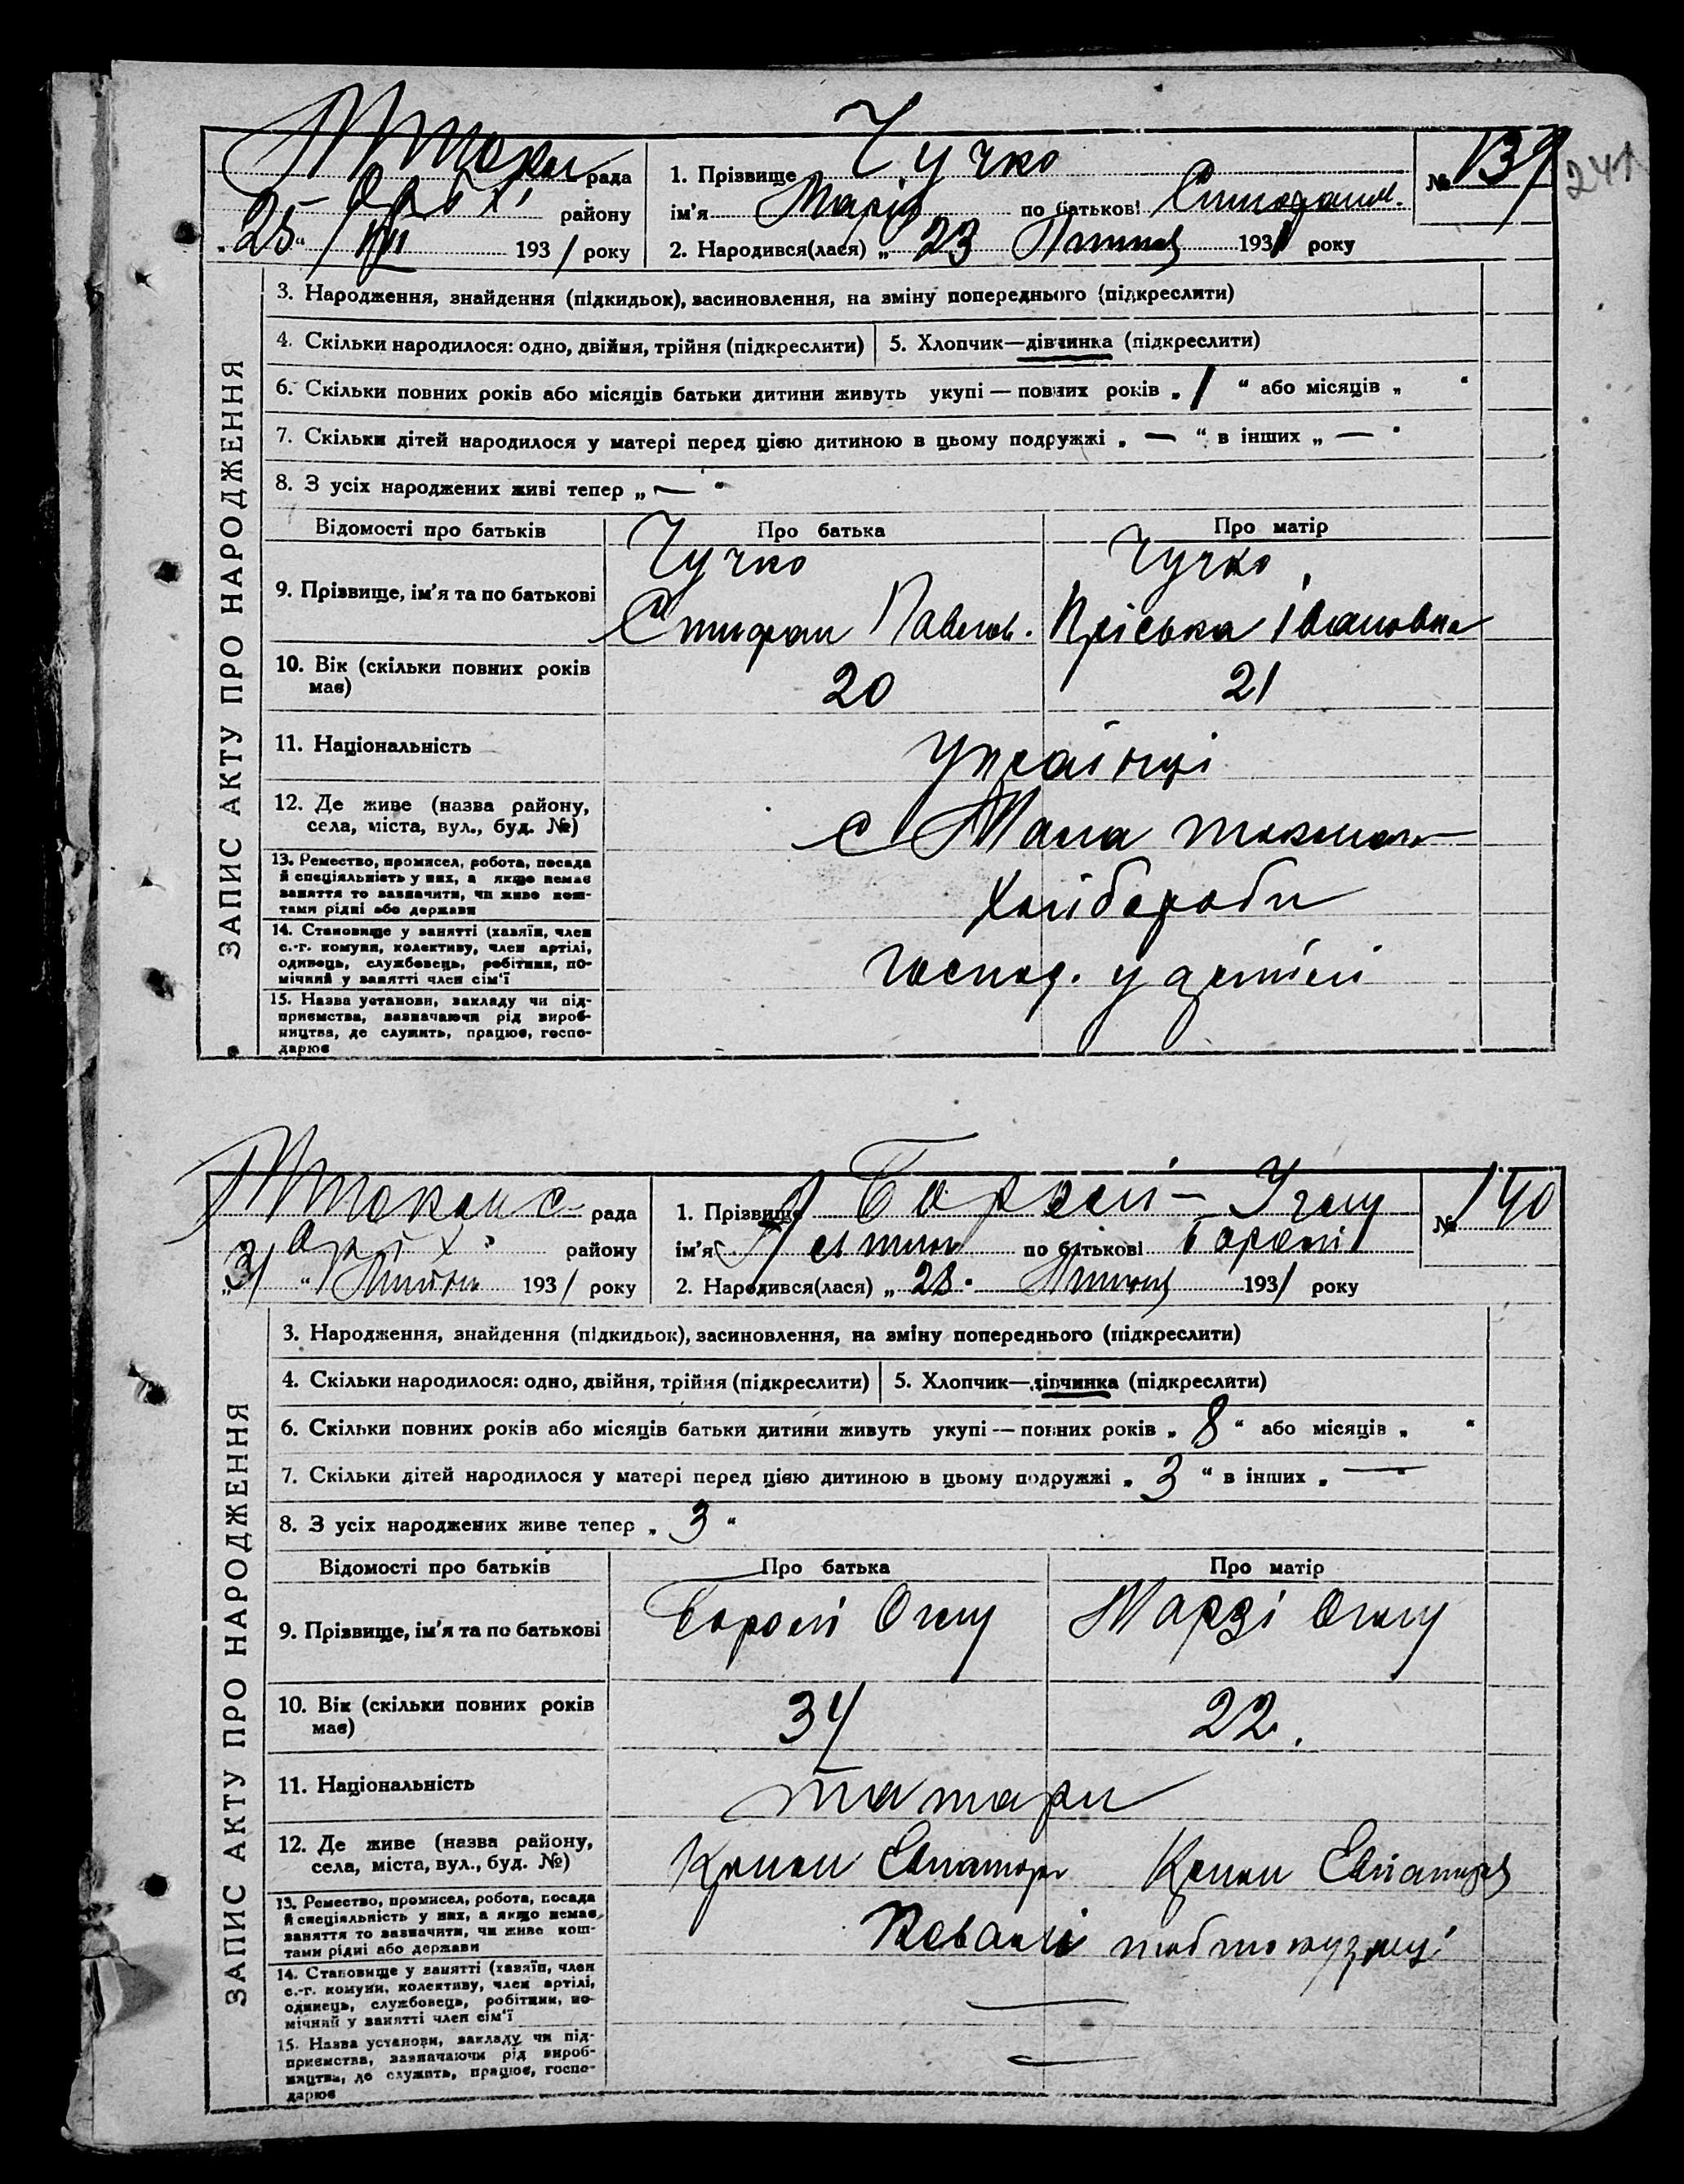 241
М Токм рада
Оріх. району
„25“ / VII 1931 року
1. Прізвище Чучко
ім'я Марія по батькові Стифанів.
2. Народився(лася) „23 Липня 1931 року
№ 139
ЗАПИС АКТУ ПРО НАРОДЖЕННЯ
3. Народження, знайдення (підкидьок), засиновлення, на зміну попереднього (підкреслити)
4. Скільки народилося: одно, двійня, трійня (підкреслити)
5. Хлопчик—дівчинка (підкреслити)
6. Скільки повних років або місяців батьки дитини живуть укупі — повних років „ 1 “ або місяців „ “
7. Скільки дітей народилося у матері перед цією дитиною в цьому подружжі „ — “ в інших „ — “
8. З усіх народжених живі тепер „ — “
Відомості про батьків
Про батька
Про матір
9. Прізвище, ім'я та по батькові
Чучко
Стифан Павлов.
Чучко
Пріська Івановна
10. Вік (скільки повних років
має)
20
21
11. Національність
Українці
12. Де живе (назва району,
села, міста, вул., буд. №)
с Мала Токмач
13. Ремество, промисел, робота, посада
й спеціяльність у них, а якщо немає
заняття то зазначити, чи живе кош-
тами рідні або держави
Хлібороби
14. Становище у занятті (хазяїн, член
с.-г. комуни, колективу, член артілі,
одинець, службовець, робітник, по-
мічний у занятті член сім'ї
Господ. у артілі
15. Назва установи, закладу чи під-
приємства, зазначаючи рід вироб-
ництва, де служить, працює, госпо-
дарює
М Токмац рада
Оріх. району
„31“ Липня 1931 року
1. Прізвище Боралі-
ім'я по батькові Боралі
2. Народився(лася) „ 28. Липня 1931 року
№ 140
ЗАПИС АКТУ ПРО НАРОДЖЕННЯ
3. Народження, знайдення (підкидьок), засиновлення, на зміну попереднього (підкреслити)
4. Скільки народилося: одно, двійня, трійня (підкреслити)
5. Хлопчик—дівчинка (підкреслити)
6. Скільки повних років або місяців батьки дитини живуть укупі — повних років „ 8 “ або місяців „ “
7. Скільки дітей народилося у матері перед цією дитиною в цьому подружжі „ 3 “ в інших „ — “
8. З усіх народжених живе тепер „ 3 “
Відомості про батьків
Про батька
Про матір
9. Прізвище, ім'я та по батькові
Боралі Оглу
Марзі Оглу
10. Вік (скільки повних років
має)
34
22.
11. Національність
татари
12. Де живе (назва району,
села, міста, вул., буд. №)
Крим Євпатор
Крим Євпаторія
13. Ремество, промисел, робота, посада
й спеціяльність у них, а якщо немає
заняття то зазначити, чи живе кош-
тами рідні або держави
Ковалі
14. Становище у занятті (хазяїн, член
с.-г. комуни, колективу, член артілі,
одинець, службовець, робітник, по-
мічний у занятті член сім'ї
—
15. Назва установи, закладу чи під-
приємства, зазначаючи рід вироб-
ництва, де служить, працює, госпо-
дарює
—